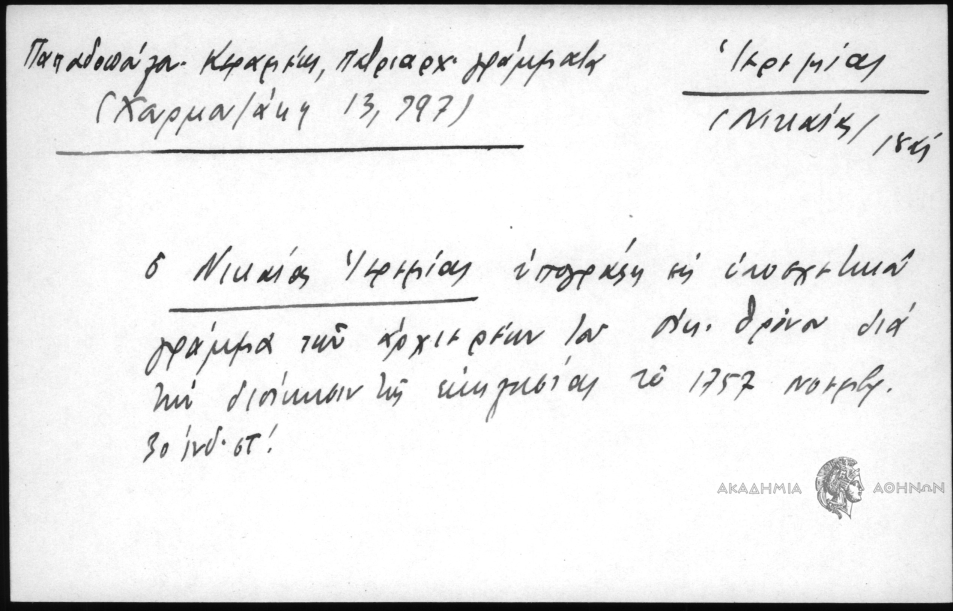 Παπαδοπούλου Κεραμέως, Πατριαρχ. γράμματα
(Χαρματζάκη 13, 797)
Ἱερεμίας
(Νικαίας) 18ος
ὁ Νικαίας Ἱερεμίας ὑπογράφει εἰς ὑποσχετικὸν
γράμμα τῶν ἀρχιερέων τοῦ οἰκ. θρόνου διὰ
τὴν διοίκησιν τῆς ἐκκλησίας τῷ 1757 νοεμβρ.
30 ἰνδ. στ΄.
ΑΚΑΔΗΜΙΑ ΑΘΗΝΩΝ